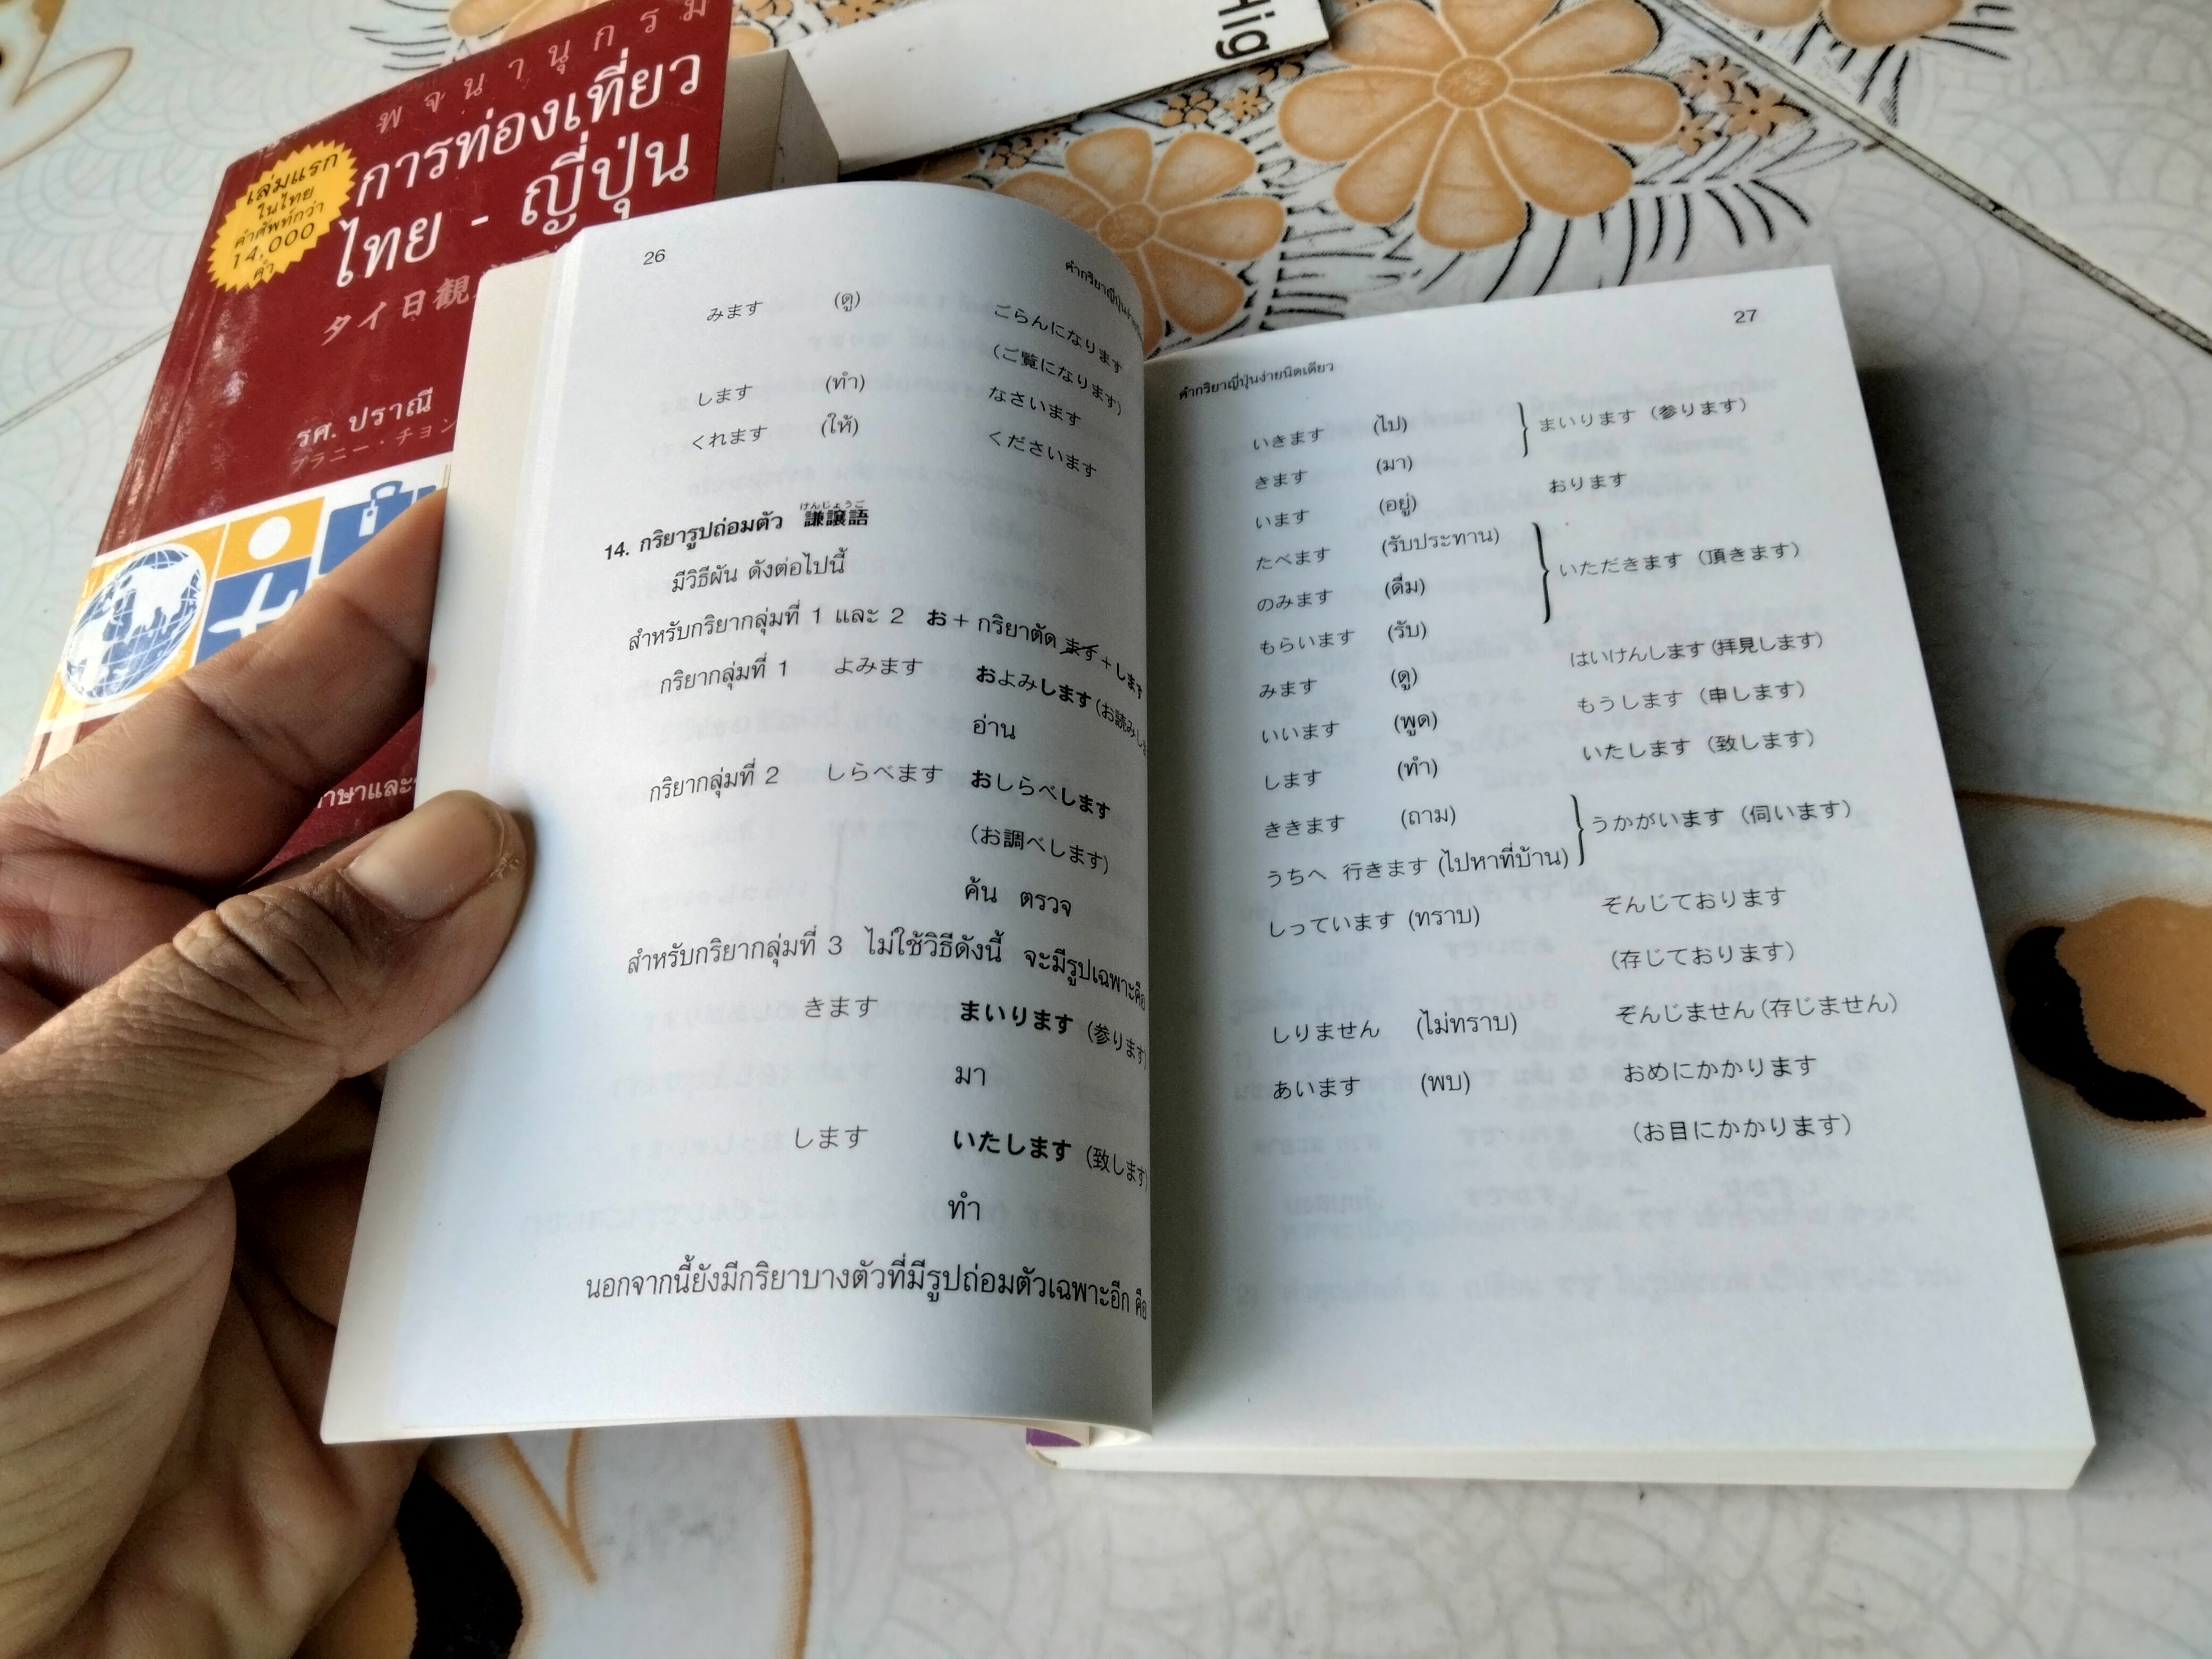 พจนานุกรม
การท่องเที่ยว
ไทย - ญี่ปุ่น
เล่มแรก
ในไทย
คำศัพท์กว่า
14,000
คำ
タイ日観
รศ. ปราณี
プラニー・チョン
าษาและ
Hig
26
คำกริยาญี่ปุ่นง่าย
みます (ดู) ごらんになります
(ご覧になります)
します (ทำ) なさいます
くれます (ให้) くださいます
14. กริยารูปถ่อมตัว 謙譲語
けんじょうご
มีวิธีผัน ดังต่อไปนี้
สำหรับกริยากลุ่มที่ 1 และ 2 お + กริยาตัด ます + します
กริยากลุ่มที่ 1 よみます およみします (お読みしま
อ่าน
กริยากลุ่มที่ 2 しらべます おしらべします
(お調べします)
ค้น ตรวจ
สำหรับกริยากลุ่มที่ 3 ไม่ใช้วิธีดังนี้ จะมีรูปเฉพาะคือ
きます まいります (参ります)
มา
します いたします (致します)
ทำ
นอกจากนี้ยังมีกริยาบางตัวที่มีรูปถ่อมตัวเฉพาะอีก คือ
27
คำกริยาญี่ปุ่นง่ายนิดเดียว
いきます (ไป) まいります (参ります)
きます (มา)
います (อยู่) おります
たべます (รับประทาน)
のみます (ดื่ม) いただきます (頂きます)
もらいます (รับ)
みます (ดู) はいけんします (拝見します)
いいます (พูด) もうします (申します)
します (ทำ) いたします (致します)
ききます (ถาม) うかがいます (伺います)
うちへ 行きます (ไปหาที่บ้าน)
しっています (ทราบ) ぞんじております
(存じております)
しりません (ไม่ทราบ) ぞんじません (存じません)
あいます (พบ) おめにかかります
(お目にかかります)